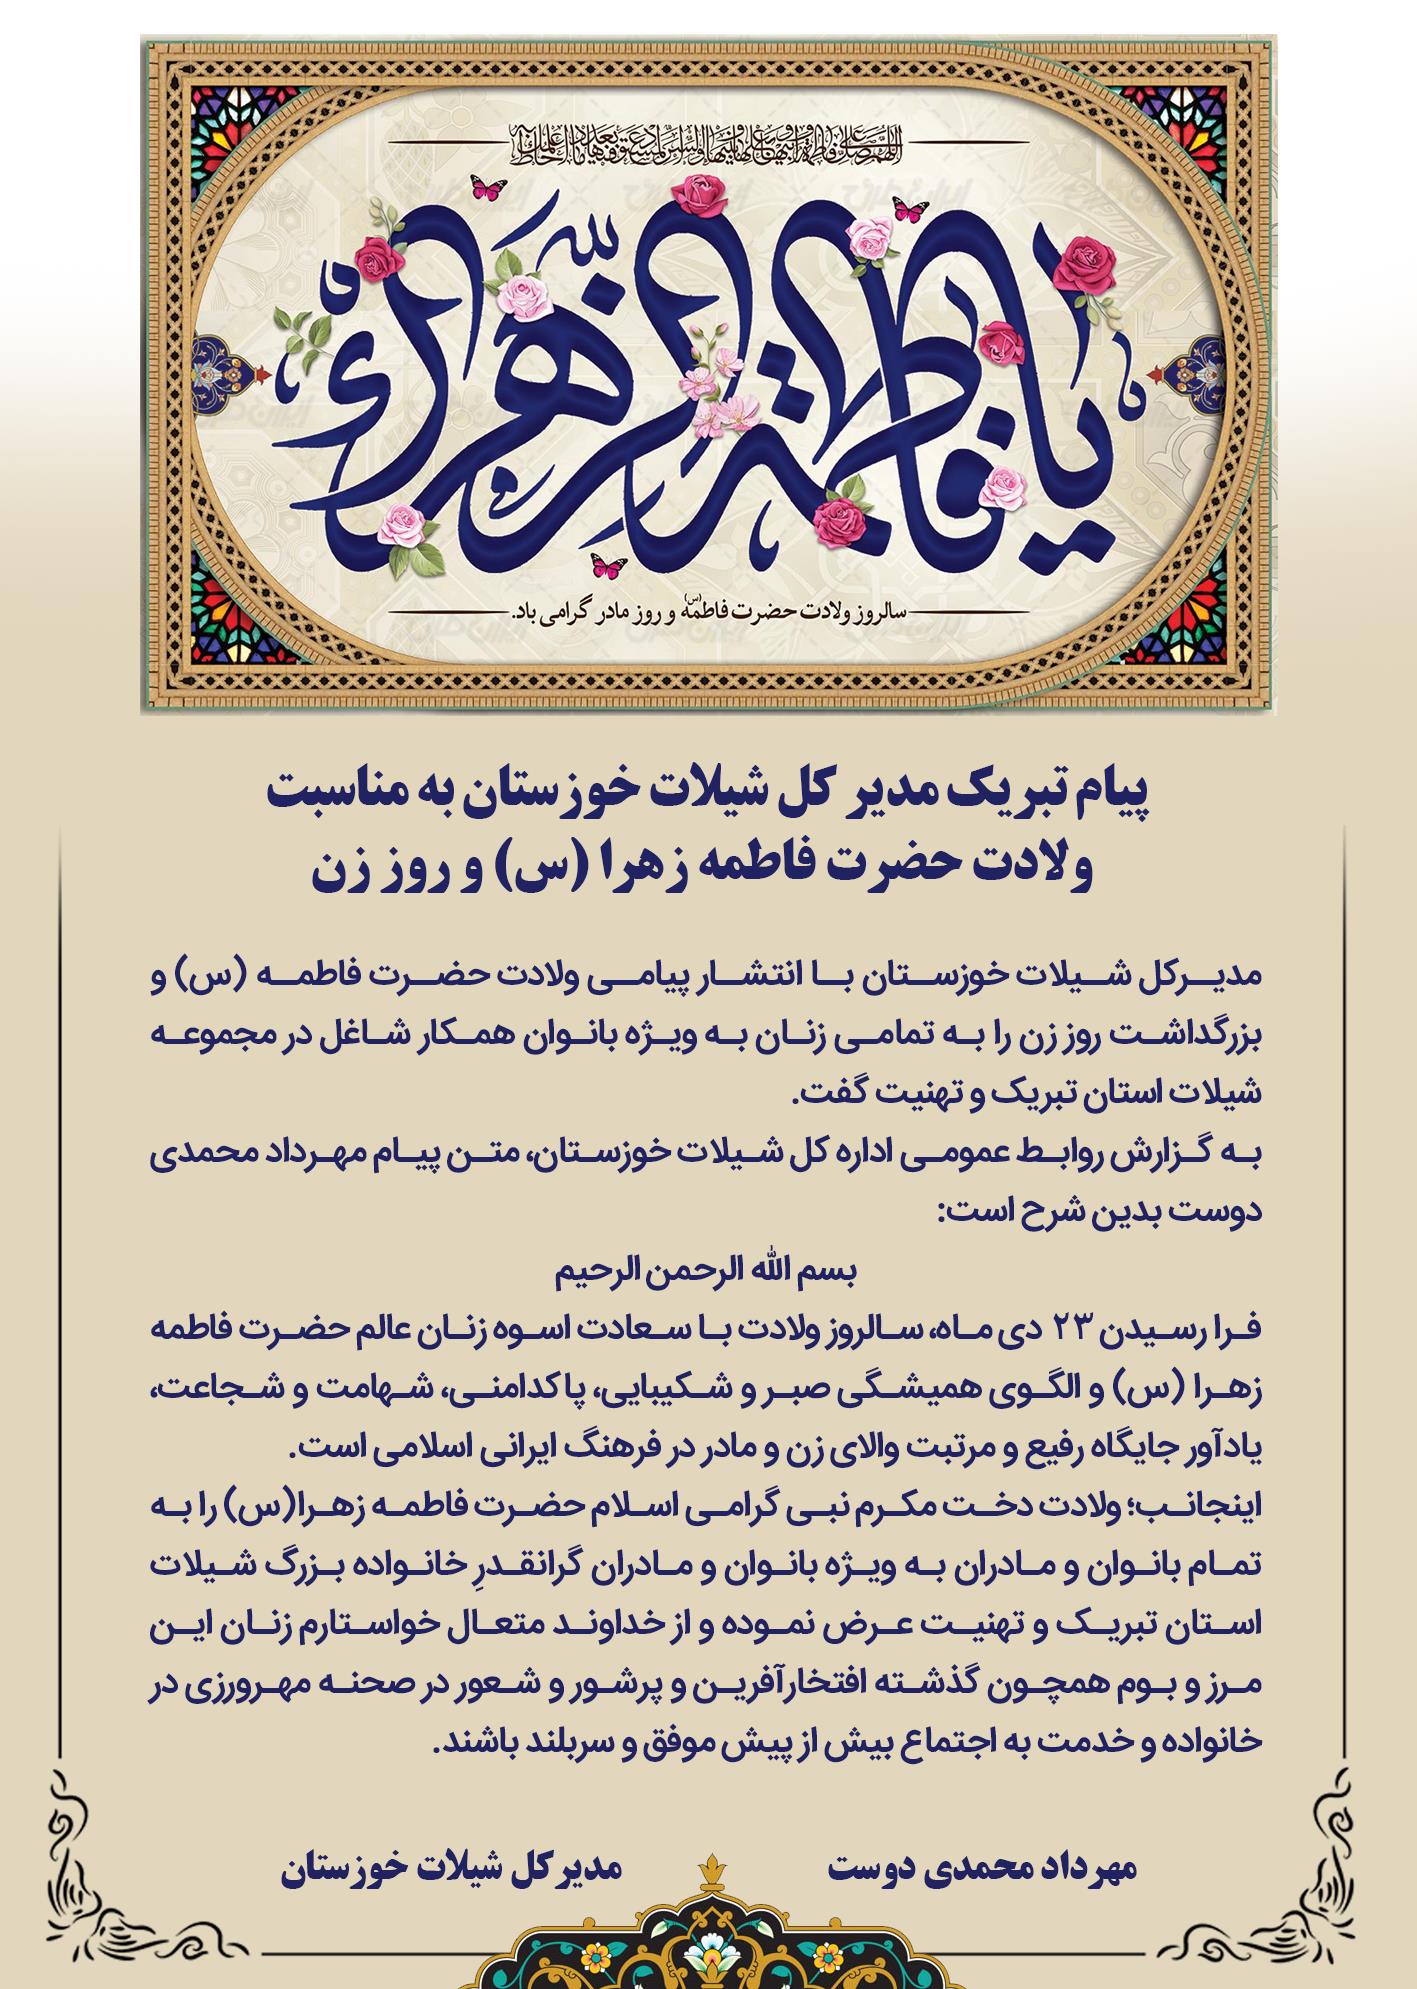 اللهم صل علی فاطمة و ابیها و بعلها و بنیها و السر المستودع فیها بعدد ما احاط به علمک
یا فاطمة الزهراء
سالروز ولادت حضرت فاطمه (س) و روز مادر گرامی باد.
پیام تبریک مدیر کل شیلات خوزستان به مناسبت
ولادت حضرت فاطمه زهرا (س) و روز زن
مدیرکل شیلات خوزستان با انتشار پیامی ولادت حضرت فاطمه (س) و
بزرگداشت روز زن را به تمامی زنان به ویژه بانوان همکار شاغل در مجموعه
شیلات استان تبریک و تهنیت گفت.
به گزارش روابط عمومی اداره کل شیلات خوزستان، متن پیام مهرداد محمدی
دوست بدین شرح است:
بسم الله الرحمن الرحیم
فرا رسیدن ۲۳ دی ماه، سالروز ولادت با سعادت اسوه زنان عالم حضرت فاطمه
زهرا (س) و الگوی همیشگی صبر و شکیبایی، پاکدامنی، شهامت و شجاعت،
یادآور جایگاه رفیع و مرتبت والای زن و مادر در فرهنگ ایرانی اسلامی است.
اینجانب؛ ولادت دخت مکرم نبی گرامی اسلام حضرت فاطمه زهرا(س) را به
تمام بانوان و مادران به ویژه بانوان و مادران گرانقدرِ خانواده بزرگ شیلات
استان تبریک و تهنیت عرض نموده و از خداوند متعال خواستارم زنان این
مرز و بوم همچون گذشته افتخارآفرین و پرشور و شعور در صحنه مهرورزی در
خانواده و خدمت به اجتماع بیش از پیش موفق و سربلند باشند.
مهرداد محمدی دوست
مدیرکل شیلات خوزستان